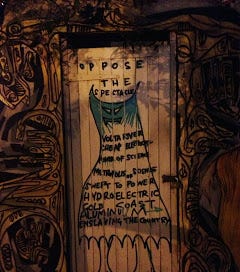 OPPOSE
THE
SPECTACLE
VOLTA RIVER
CHEAP ELECTRICITY
OF SCIENCE
METROPOLIS OF SCIENCE
SWEPT TO POWER
HYDROELECTRIC
GOLD COAST
ALUMINUM
ENSLAVING THE COUNTRY